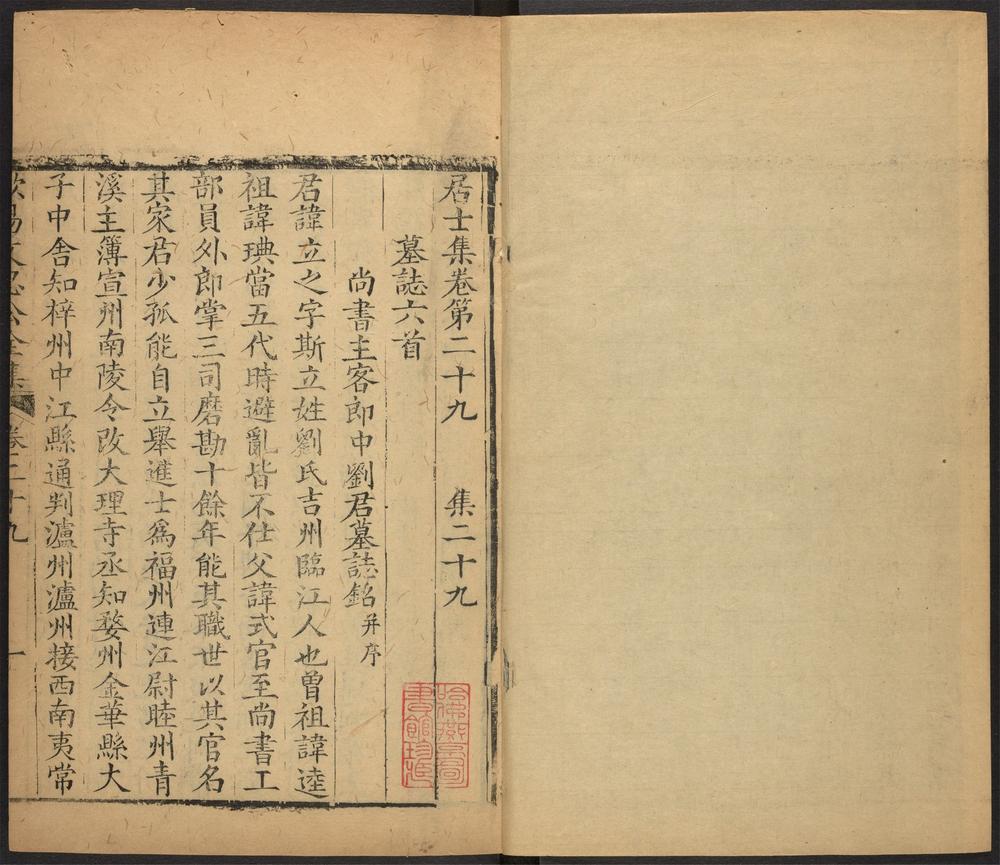 居士集卷第二十九　集二十九
墓誌六首
尚書主客郎中劉君墓誌銘并序
君諱立之字斯立姓劉氏吉州臨江人也曾祖諱逵
祖諱琠當五代時避亂皆不仕父諱式官至尚書工
部員外郎掌三司磨勘十餘年能其職世以其官名
其家君少孤能自立舉進士爲福州連江尉睦州青
溪主簿宣州南陵令改大理寺丞知婺州金華縣大
子中舍知梓州中江縣通判瀘州瀘州接西南夷常
歐陽文忠公全集　卷二十九　一
哈佛燕京圖書館珍藏